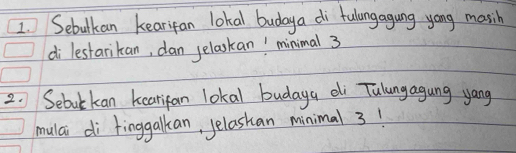 1. Sebutkan kearifan lokal budaya di tulungagung yang masih
di lestarikan, dan jelaskan! minimal 3
2. Sebutkan kearifan lokal budaya di Tulungagung yang
mulai di tinggalkan, jelaskan minimal 3!